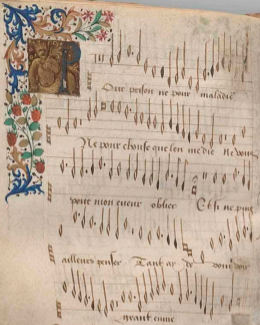 Our pession ne pour maladie
Ne pour chouse que len me die Ne pour
pour mon cueur oblier Et si ne puis
ailleurs penser Tant ay de
grant envie